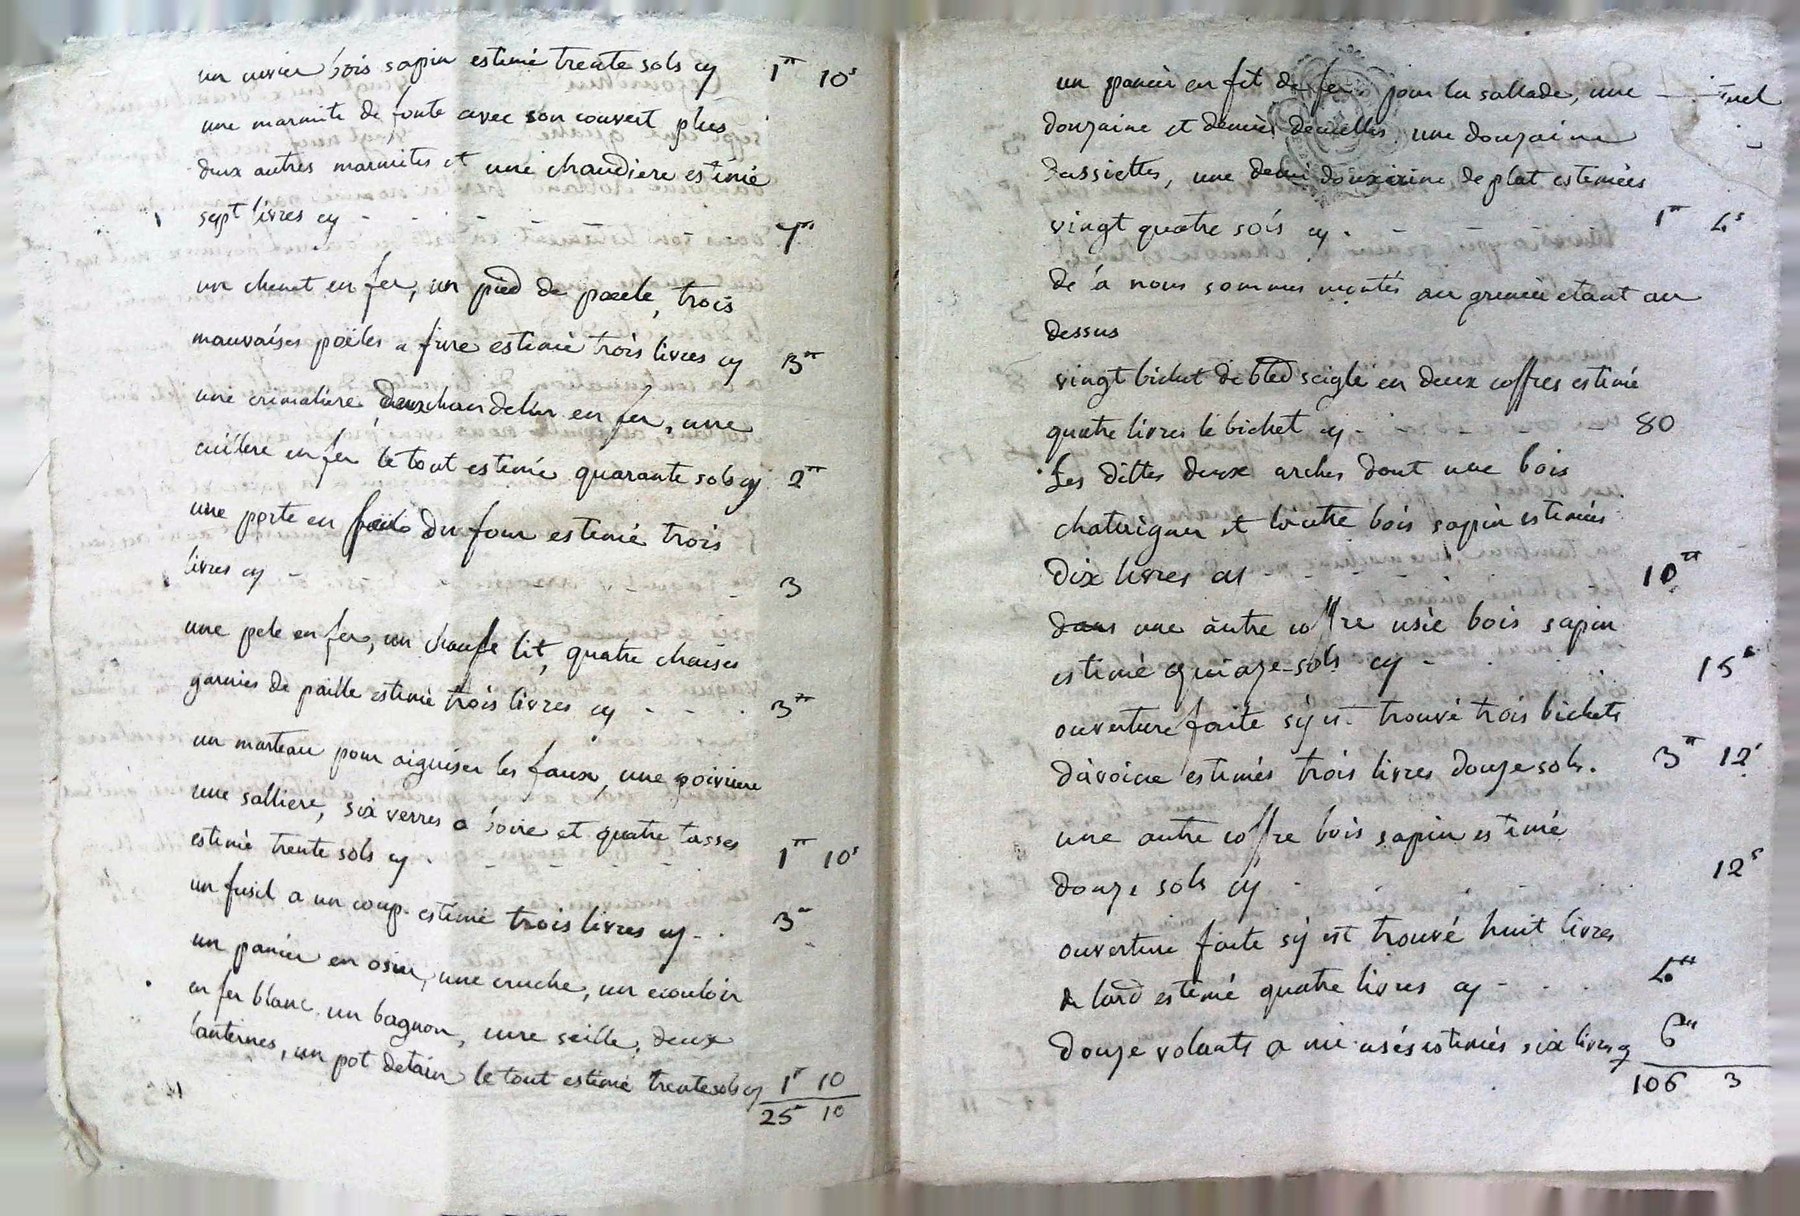 un cuvier bois sapin estimé trente sols cy 1ᵗᵗ 10ˢ
une marmite de fonte avec son couvert plus
deux autres marmites et une chaudiere estimé
sept livres cy - - - - - - 7ᵗᵗ
un chenet en fer, un pied de poele, trois
mauvaises poëles a frire estimé trois livres cy 3ᵗᵗ
une crimaliere, deux chandelier en fer, une
cuillere en fer le tout estimé quarante sols cy 2ᵗᵗ
une porte en du four estimé trois
livres cy - - 3
une pele en fer, un chaufe lit, quatre chaises
garnies de paille estimé trois livres cy - - . 3ᵗᵗ
un marteau pour aiguiser les faux, une poivriere
une salliere, six verres a boire et quatre tasses
estimé trente sols cy - - - - 1ᵗᵗ 10ˢ
un fusil a un coup estimé trois livres cy - . 3ᵗᵗ
un panier en osier, une cruche, un ecouloir
en fer blanc, un bagnon, une seille, deux
lanternes, un pot detain le tout estimé trente sols cy 1ᵗᵗ 10
25ᵗᵗ 10
un panier en fil de fer pour la sallade, une
douzaine et demies decuelles une douzaine
dassiettes, une demi douzaine de plat estimées
vingt quatre sols cy . - - - 1ᵗᵗ 4ˢ
de a nous sommes montés au grenier etant au
dessus
vingt bichet de bled seigle en deux coffres estimé
quatre livres le bichet cy - - - - 80
Les dittes deux arches dont une bois
chataigner et loutre bois sapin estimées
dix livres cy - - - - - 10ᵗᵗ
dans une autre coffre usée bois sapin
estimé quinze sols cy - . . . 15ˢ
ouverture faite sÿ est trouvé trois bichets
davoine estimés trois livres douze sols. 3ᵗᵗ 12ˢ
une autre coffre bois sapin estimé
douze sols cy - . . 12ˢ
ouverture faite sÿ est trouvé huit livres
de lard estimé quatre livres cy - . . 4ᵗᵗ
Douze volants a mi usés estimés six livres cy 6ᵗᵗ
106 3